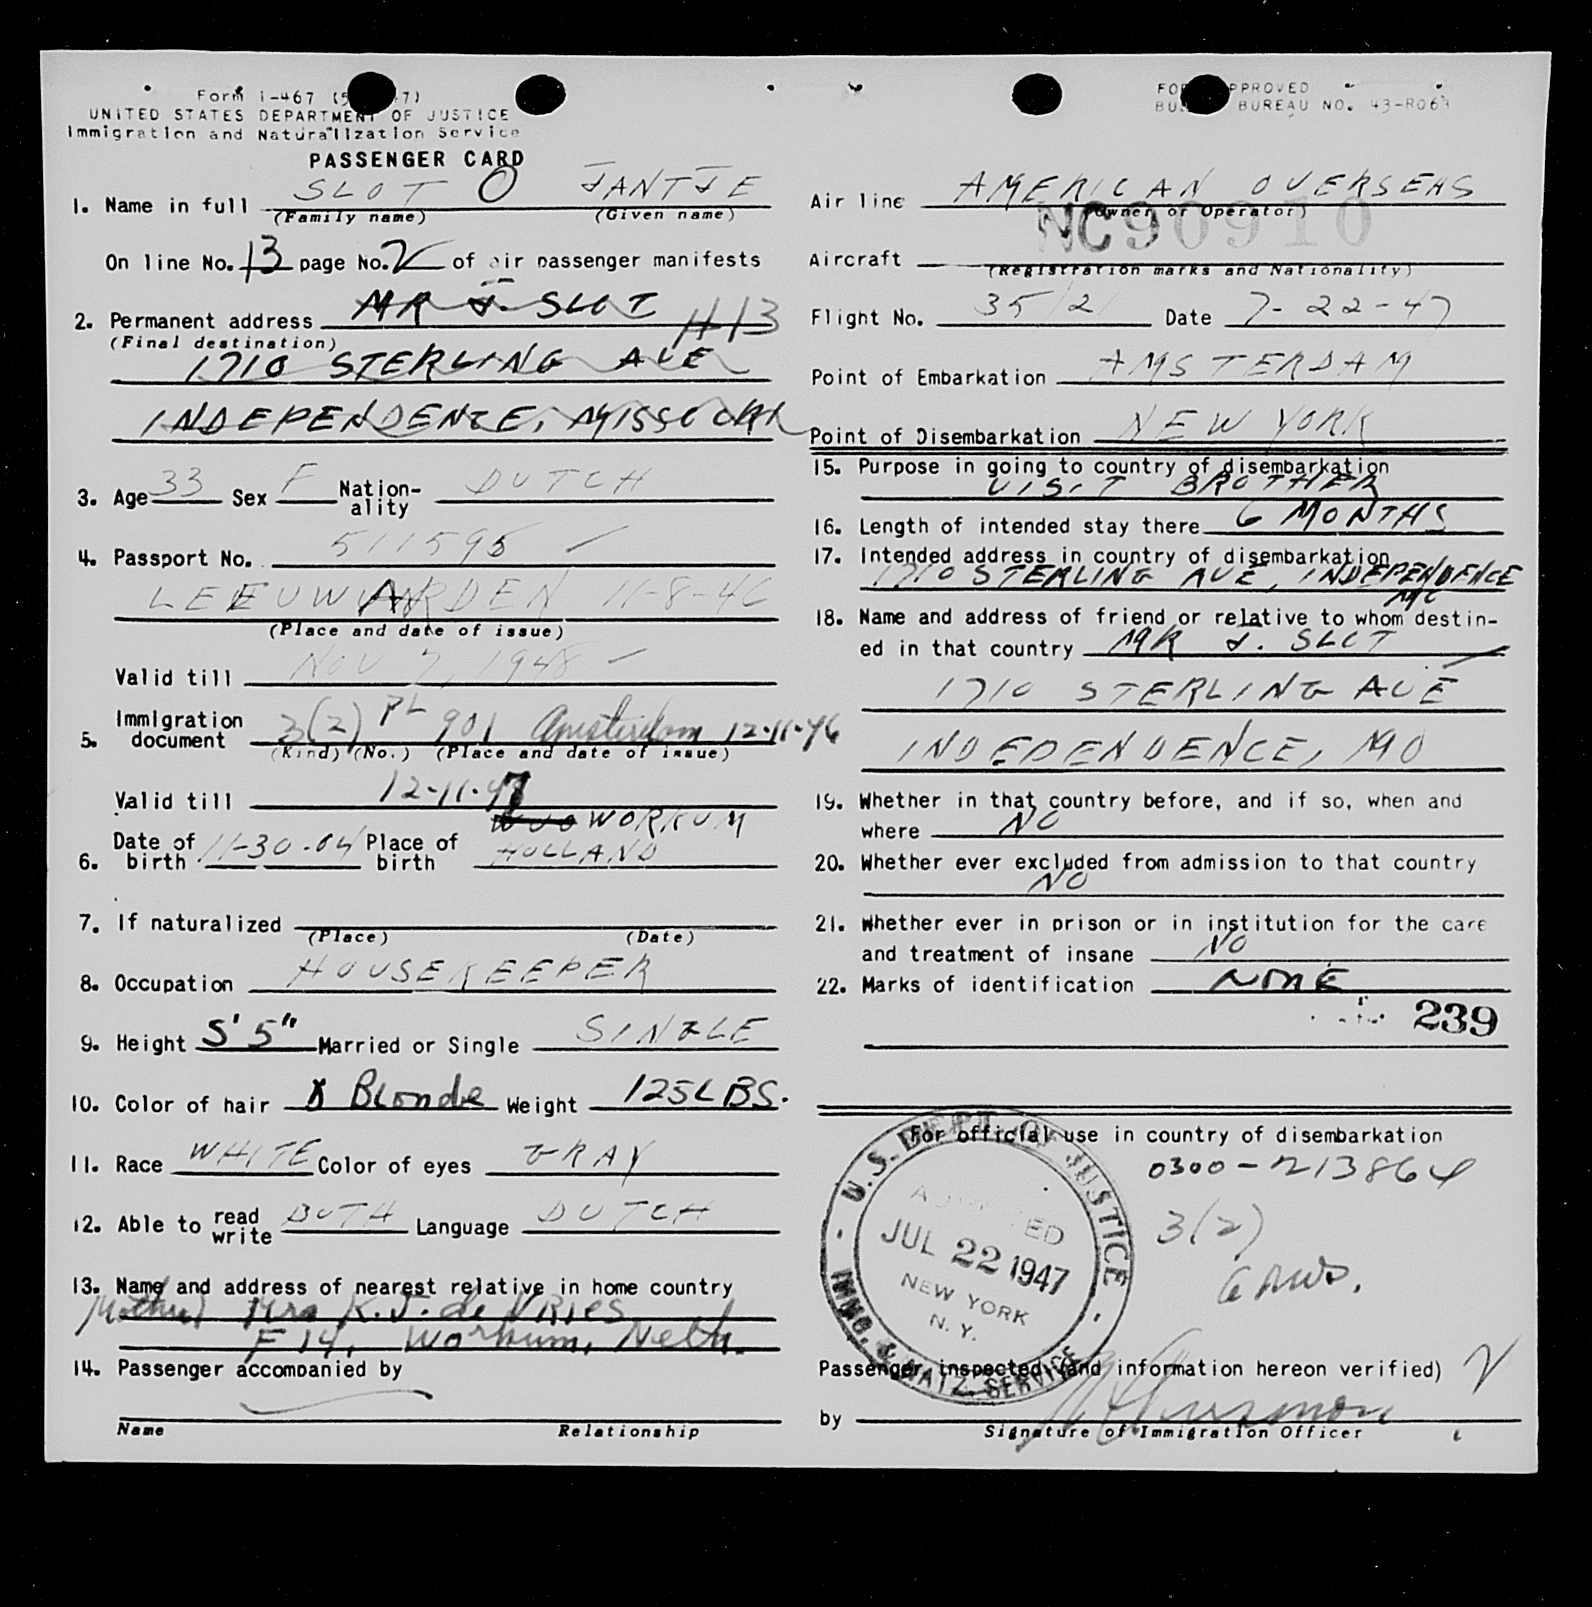 Form I-467
UNITED STATES DEPARTMENT OF JUSTICE
Immigration and Naturalization Service
PASSENGER CARD
1. Name in full SLOT O JANTJE
(Family name) (Given name)
On line No. 13 page No. 2 of air passenger manifests
2. Permanent address MR J. SLOT
(Final destination)
1710 STERLING AVE
INDEPENDENCE, MISSOURI
3. Age 33 Sex F Nation-ality DUTCH
4. Passport No. 511595
LEEUWARDEN 11-8-46
(Place and date of issue)
Valid till NOV 7, 1948
5. Immigration document 3(2) PL 901 Amsterdam 12-11-46
(Kind) (No.) (Place and date of issue)
Valid till 12-11-47
6. Date of birth 11-30-04 Place of birth WORKUM
HOLLAND
7. If naturalized
(Place) (Date)
8. Occupation HOUSEKEEPER
9. Height 5' 5" Married or Single SINGLE
10. Color of hair Blonde Weight 125 LBS.
11. Race WHITE Color of eyes GRAY
12. Able to read write BOTH Language DUTCH
13. Name and address of nearest relative in home country
Mother Mrs K. J. de VRies
F 14, Workum, Neth.
14. Passenger accompanied by
Name Relationship
FORM APPROVED
BUREAU NO. 43-R063
Air line AMERICAN OVERSEAS
(Owner or Operator)
NC90910
Aircraft
(Registration marks and Nationality)
Flight No. 35/2 Date 7-22-47
Point of Embarkation AMSTERDAM
Point of Disembarkation NEW YORK
15. Purpose in going to country of disembarkation
VISIT BROTHER
16. Length of intended stay there 6 MONTHS
17. Intended address in country of disembarkation
1710 STERLING AVE, INDEPENDENCE
MO
18. Name and address of friend or relative to whom destin-
ed in that country MR J. SLOT
1710 STERLING AVE
INDEPENDENCE, MO
19. Whether in that country before, and if so, when and
where NO
20. Whether ever excluded from admission to that country
NO
21. Whether ever in prison or in institution for the care
and treatment of insane NO
22. Marks of identification NONE
239
For official use in country of disembarkation
0300-213864
3(2)
6 mos.
U.S. DEPT. OF JUSTICE
ADMITTED
JUL 22 1947
NEW YORK
N.Y.
IMMG. & NATZ. SERVICE
Passenger inspected (and information hereon verified)
by
Signature of Immigration Officer